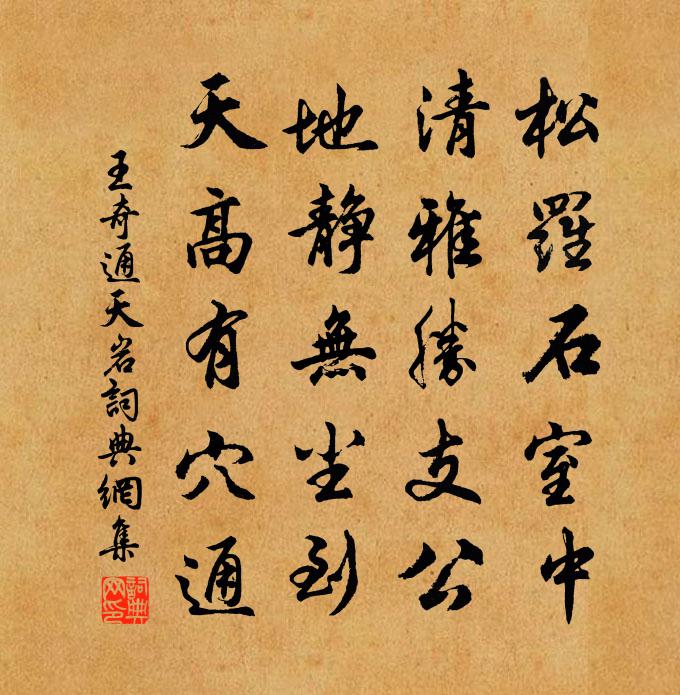 松羅石室中
清雅勝支公
地静無尘到
天高有穴通
王奇通天岩詞典網集
詞典网印